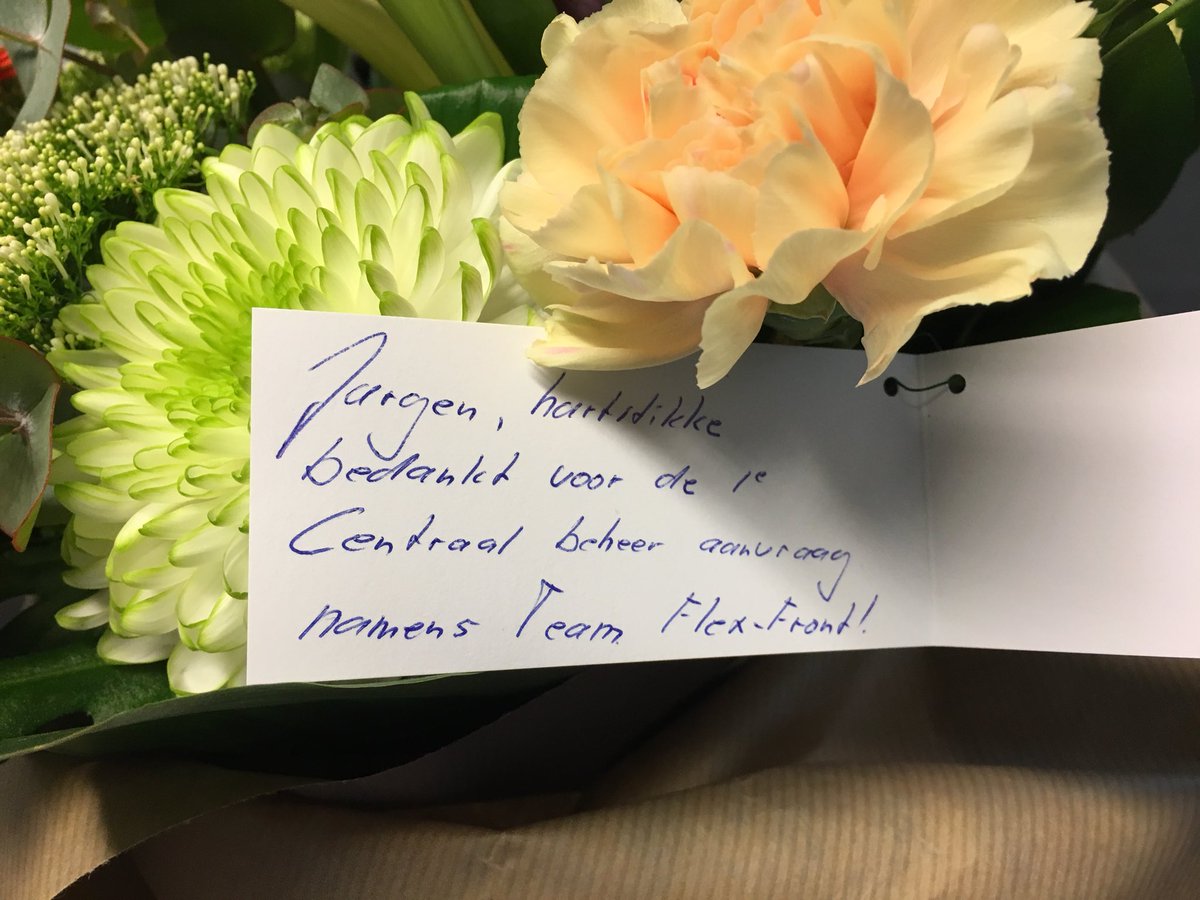 Jurgen, hartstikke
bedankt voor de 1e
Centraal beheer aanvraag
namens Team Flex-Front!